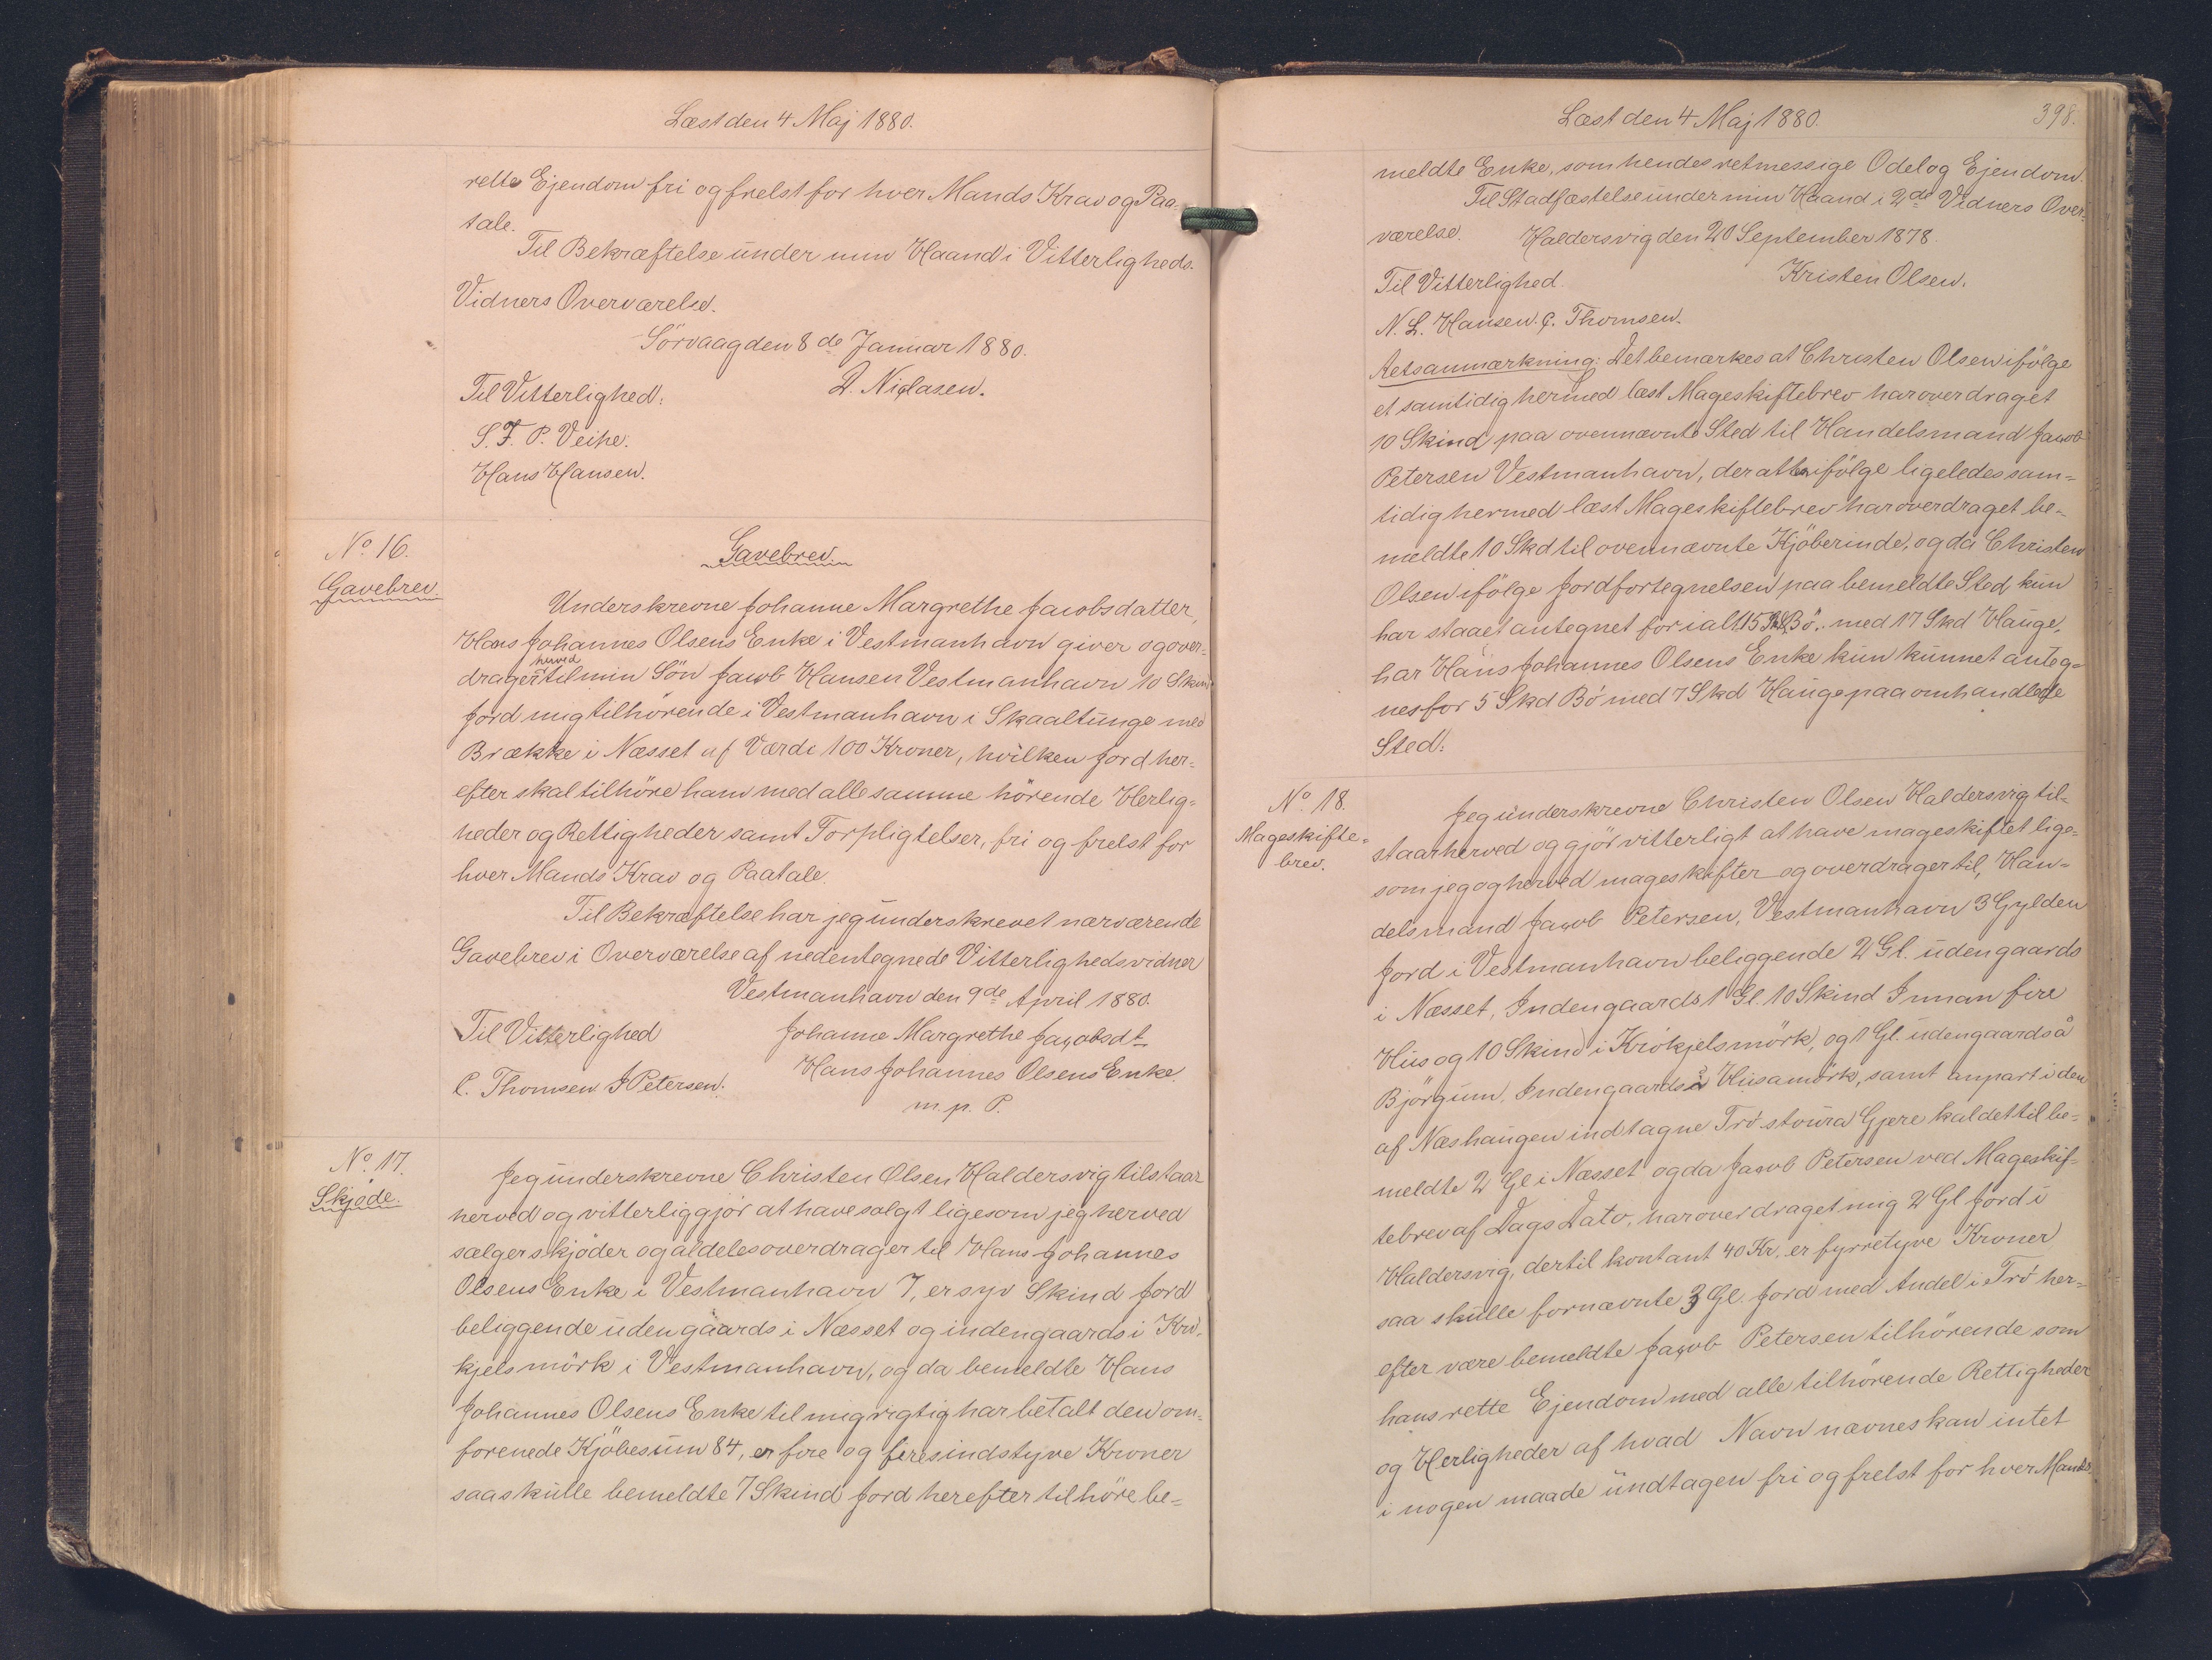 Læst den 4 Maj 1880.
rette Ejendom fri og frelst for hver Mands Krav og Paa-
tale.
Til Bekræftelse under min Haand i Vitterligheds-
Vidners Overværelse.
Sörvaag den 8de Januar 1880.
Til Vitterlighed: D. Niclasen.
S. F. P. Veihe.
Hans Hansen.
No. 16.
Gavebrev.
Gavebrev
Underskrevne Johanne Margrethe Jacobsdatter,
Hans Johannes Olsens Enke i Vestmanhavn giver og over-
drager herved til min Sön Jacob Hansen Vestmanhavn 10 Skind
Jord mig tilhörende i Vestmanhavn i Skaaltunge med
Brække i Næsset af Værdi 100 Kroner, hvilken Jord her-
efter skal tilhöre ham med alle samme hörende Herlig-
heder og Rettigheder samt Forpligtelser, fri og frelst for
hver Mands Krav og Paatale.
Til Bekræftelse har jeg underskrevet nærværende
Gavebrev i Overværelse af nedentegnede Vitterlighedsvidner
Vestmanhavn den 9de April 1880.
Til Vitterlighed Johanne Margrethe Jacobsdt
C. Thomsen J Petersen. Hans Johannes Olsens Enke.
m. p. P.
No. 17.
Skjøde.
Jeg underskrevne Christen Olsen Haldersvig tilstaar
herved og vitterliggjör at have solgt ligesom jeg herved
sælger skjöder og aldeles overdrager til Hans Johannes
Olsens Enke i Vestmanhavn 7, er syv Skind Jord
beliggende udengaards i Næsset og indengaards i Kró-
kjelsmörk i Vestmanhavn, og da bemeldte Hans
Johannes Olsens Enke til mig rigtig har betalt den om-
forenede Kjöbesum 84, er fire og firesindstyve Kroner
saa skulle bemeldte 7 Skind Jord herefter tilhöre be-
Læst den 4 Maj 1880.
398.
meldte Enke, som hendes retmessige Odel og Ejendom.
Til Stadfæstelse under min Haand i 2de Vidners Over-
værelse. Haldersvig den 20 September 1878.
Til Vitterlighed. Kristen Olsen.
N. L. Hansen. C. Thomsen.
Retsanmærkning: Det bemærkes at Christen Olsen ifölge
et samtidig hermed læst Mageskiftebrev har overdraget
10 Skind paa ovennævnte Sted til Handelsmand Jacob
Petersen Vestmanhavn, der atter ifölge ligeledes sam-
tidig hermed læst Mageskiftebrev har overdraget be-
meldte 10 Skd til ovennævnte Kjöberinde, og da Christen
Olsen ifölge Jordfortegnelsen paa bemeldte Sted kun
har staaet antegnet for ialt 15 Skd Bö. med 17 Skd Hauge,
har Hans Johannes Olsens Enke kun kunnet anteg-
nes for 5 Skd Bö med 7 Skd Hauge paa omhandlede
Sted.
No. 18.
Mageskifte-
brev.
Jeg underskrevne Christen Olsen Haldersvig til-
staar herved og gjör vitterligt at have mageskiftet lige-
som jeg og herved mageskifter og overdrager til, Han-
delsmand Jacob Petersen, Vestmanhavn 3 Gylden
Jord i Vestmanhavn beliggende 2 Gl. udengaards
i Næsset, Indengaards 1 Gl. 10 Skind Innan fire
Hus og 10 Skind i Krókjelsmörk, og 1 Gl. udengaards å
Björgum, Indengaards å Húsamörk, samt anpart i den
af Næshaugen indtagne Trö stoura Gjere kaldet til be-
meldte 2 Gl i Næsset og da Jacob Petersen ved Mageskif-
tebrev af Dags Dato, har overdraget mig 2 Gl Jord i
Haldersvig, dertil kontant 40 Kr. er fyrretyve Kroner
saa skulle fornævnte 3 Gl. Jord med Andel i Trö her-
efter være bemeldte Jacob Petersen tilhörende som
hans rette Ejendom med alle tilhörende Rettigheder
og Herligheder af hvad Navn nævnes kan intet
i nogen maade undtagen fri og frelst for hver Mands